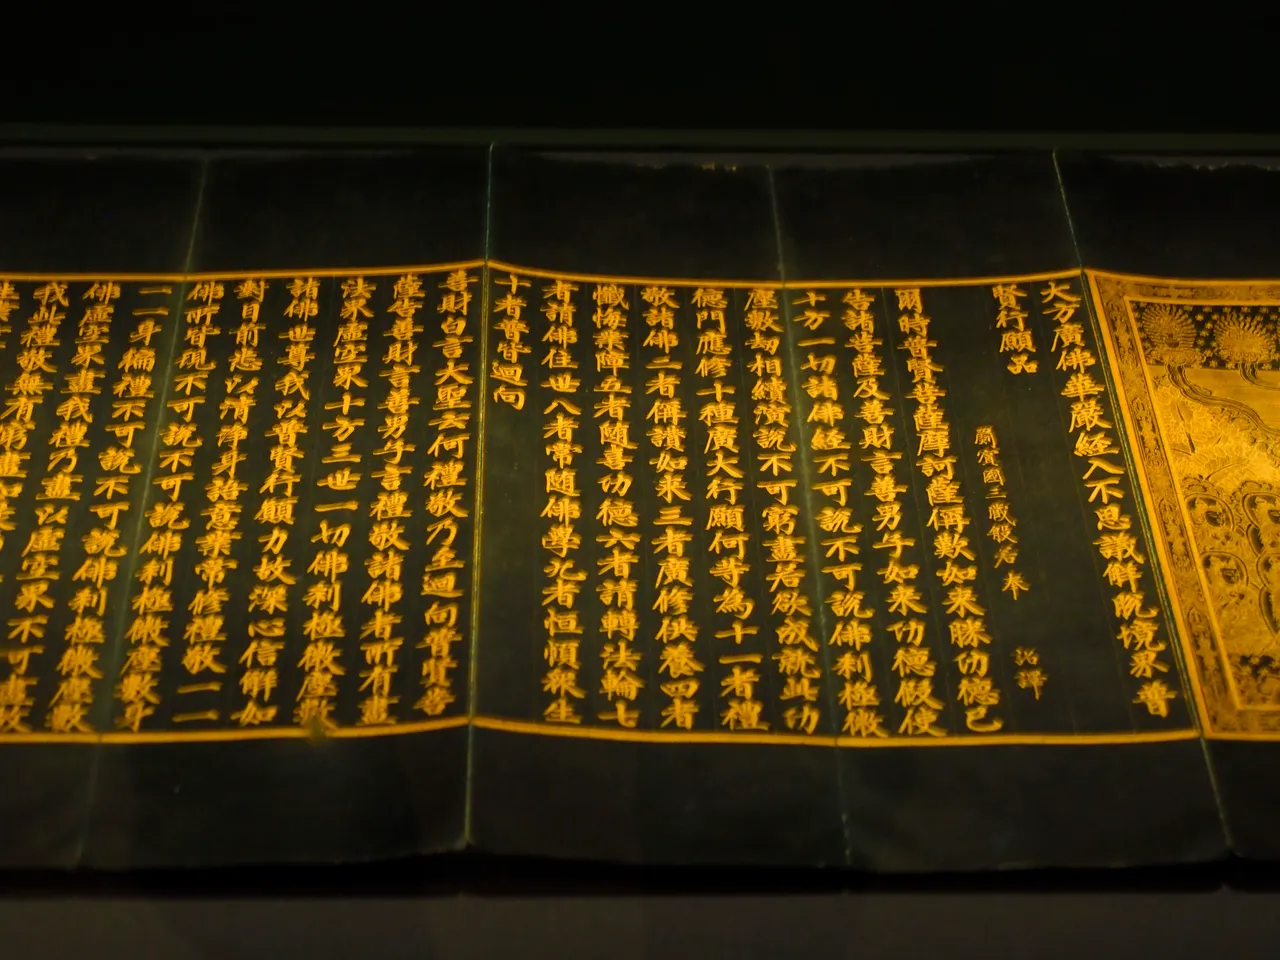 大方廣佛華嚴經入不思議解脫境界普
賢行願品
罽賓國三藏般若奉 詔譯
爾時普賢菩薩摩訶薩偁歎如来勝功德已
告諸菩薩及善財言善男子如来功德假使
十方一切諸佛經不可說不可說佛刹極微
塵數劫相續演說不可窮盡若欲成就此功
德門應修十種廣大行願何等為十一者禮
敬諸佛二者偁讚如来三者廣修供養四者
懺悔業障五者随喜功德六者請轉法輪七
者請佛住世八者常随佛學九者恒順衆生
十者普皆迴向
善財白言大聖云何禮敬乃至迴向普賢菩
薩告善財言善男子言禮敬諸佛者所有盡
法界虛空界十方三世一切佛刹極微塵數
諸佛世尊我以普賢行願力故深心信解如
對目前悉以清淨身語意業常修禮敬一一
佛所皆現不可說不可說佛刹極微塵數身
一一身徧禮不可說不可說佛刹極微塵數
佛虛空界盡我禮乃盡以虛空界不可盡故
我此禮敬無有窮